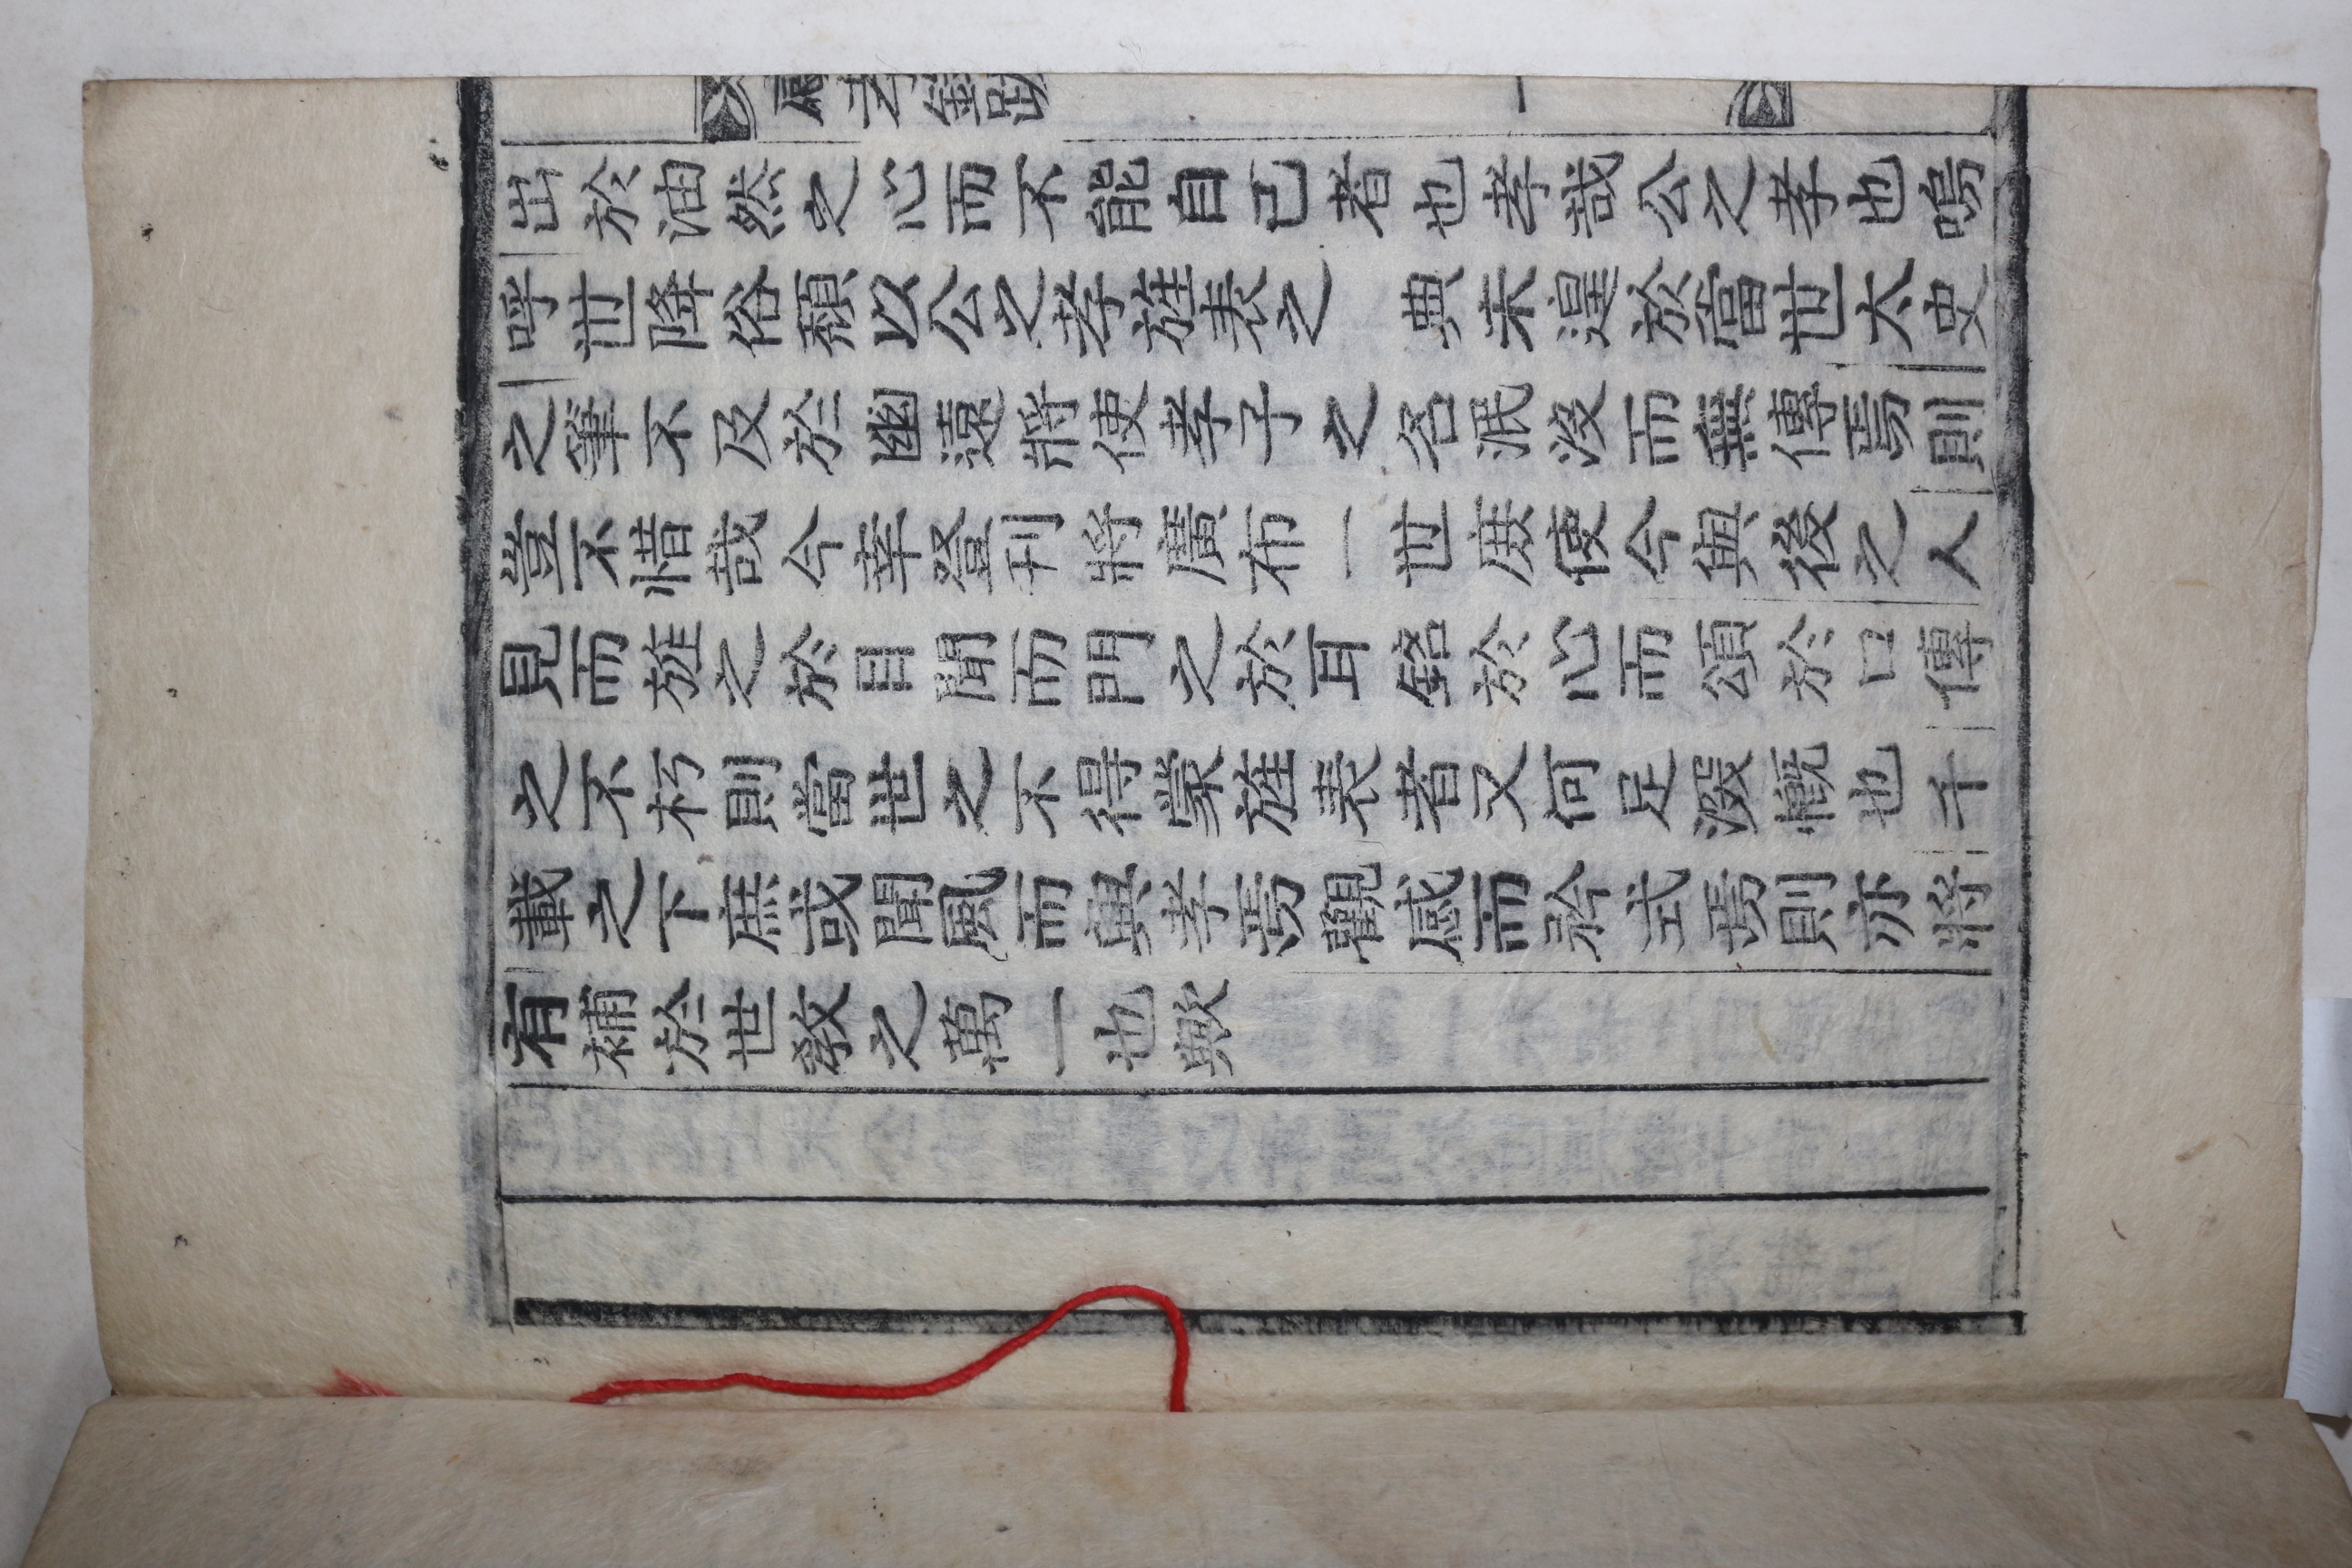 感孝錄跋
一
出於油然之心而不能自已者也孝哉公之孝也嗚
呼世降俗頹以公之孝旌表之 典未遑於當世太史
之筆不及於幽遠將使孝子之名泯沒而無傳焉則
豈不惜哉今幸登刊將廣布一世庶使今與後之人
見而旌之於目聞而門之於耳銘於心而頌於口傳
之不朽則當世之不得蒙旌表者又何足深慨也千
載之下庶或聞風而興孝焉觀感而矜式焉則亦將
有補於世敎之萬一也歟